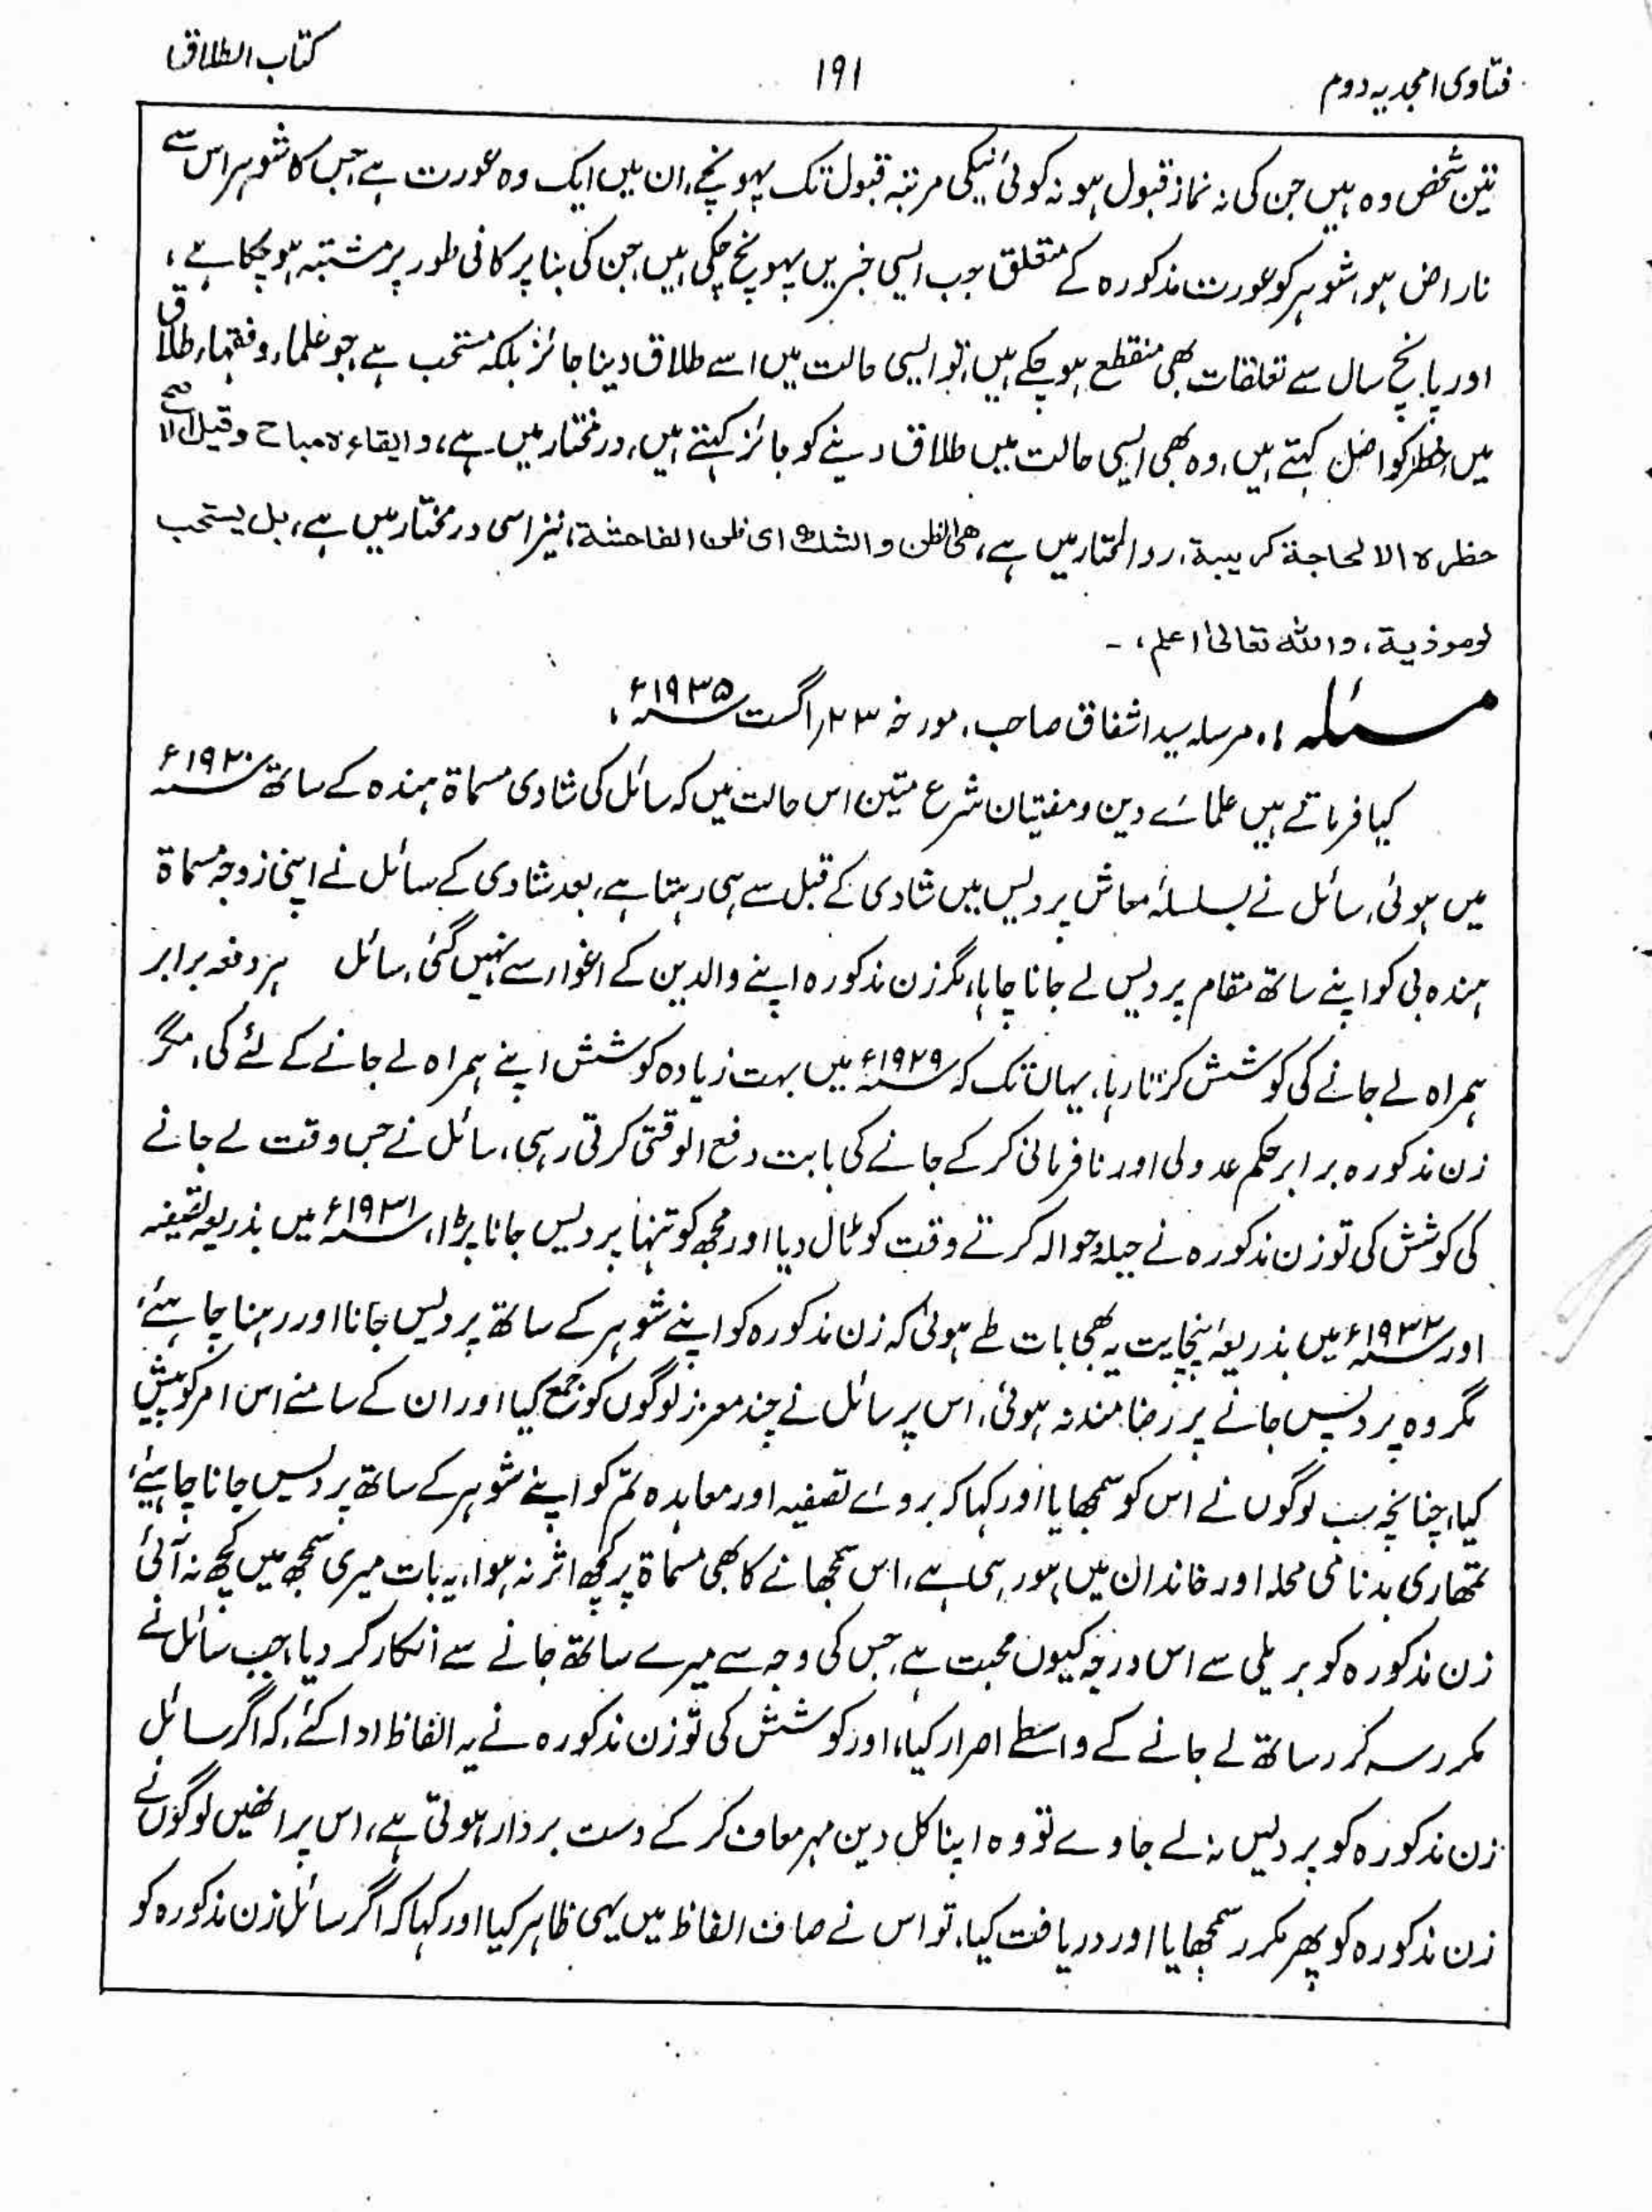 فتاوی امجدیہ دوم
۱۹۱
کتاب الطلاق
تین شخص وہ ہیں جن کی نہ نماز قبول ہو نہ کوئی نیکی مرتبہ قبول تک پہونچے، ان میں ایک وہ عورت ہے جس کا شوہر اس سے
ناراض ہو، شوہر کو عورت مذکورہ کے متعلق جب ایسی خبریں پہونچ چکی ہیں، جن کی بنا پر کافی طور پر مشتبہ ہو چکا ہے،
اور پانچ سال سے تعلقات بھی منقطع ہو چکے ہیں، تو ایسی حالت میں اسے طلاق دینا جائز بلکہ مستحب ہے، جو علماء و فقہاء طلاق
میں حظر کو اصل کہتے ہیں، وہ بھی ایسی حالت میں طلاق دینے کو جائز کہتے ہیں، درمختار میں ہے، وایقاعہ مباح وقیل الاصح
حظرہ الا لحاجة کریبة، ردالمحتار میں ہے، ھی الظن والشک ای ظن الفاحشة، نیز اسی درمختار میں ہے، بل یستحب
لوموذیة، واللہ تعالیٰ اعلم، ۔
مسئلہ :۔ مرسلہ سید اشفاق صاحب، مورخہ ۲۳؍ اگست ۱۹۳۵ء،
کیا فرماتے ہیں علمائے دین و مفتیان شرع متین اس حالت میں کہ سائل کی شادی مسماۃ ہندہ کے ساتھ ۱۹۲۰ء
میں ہوئی، سائل نے بسلسلۂ معاش پردیس میں شادی کے قبل سے ہی رہتا ہے، بعد شادی کے سائل نے اپنی زوجہ مسماۃ
ہندہ بی کو اپنے ساتھ مقام پردیس لے جانا چاہا، مگر زن مذکورہ اپنے والدین کے اغوار سے نہیں گئی، سائل ہر دفعہ برابر
ہمراہ لے جانے کی کوشش کرتا رہا، یہاں تک کہ ۱۹۲۹ء میں بہت زیادہ کوشش اپنے ہمراہ لے جانے کے لئے کی، مگر
زن مذکورہ برابر حکم عدولی اور نافرمانی کر کے جانے کی بابت دفع الوقتی کرتی رہی، سائل نے جس وقت لے جانے
کی کوشش کی تو زن مذکورہ نے حیلہ و حوالہ کرتے وقت کو ٹال دیا اور مجھ کو تنہا پردیس جانا پڑا، ۱۹۳۱ء میں بذریعہ تصفیہ
اور ۱۹۳۲ء میں بذریعۂ پنچایت یہ بھی بات طے ہوئی کہ زن مذکورہ کو اپنے شوہر کے ساتھ پردیس جانا اور رہنا چاہئے،
مگر وہ پردیس جانے پر رضامند نہ ہوئی، اس پر سائل نے چند معزز لوگوں کو جمع کیا اور ان کے سامنے اس امر کو پیش
کیا، چنانچہ سب لوگوں نے اس کو سمجھایا اور کہا کہ بروئے تصفیہ اور معاہدہ تم کو اپنے شوہر کے ساتھ پردیس جانا چاہیئے،
تمھاری بدنامی محلہ اور خاندان میں ہو رہی ہے، اس سمجھانے کا بھی مسماۃ پر کچھ اثر نہ ہوا، یہ بات میری سمجھ میں کچھ نہ آئی
زن مذکورہ کو بریلی سے اس درجہ کیوں محبت ہے، جس کی وجہ سے میرے ساتھ جانے سے انکار کر دیا، جب سائل نے
مکرر سہ کرر ساتھ لے جانے کے واسطے اصرار کیا، اور کوشش کی تو زن مذکورہ نے یہ الفاظ ادا کئے، کہ اگر سائل
زن مذکورہ کو پردیس نہ لے جاوے تو وہ اپنا کل دین مہر معاف کر کے دست بردار ہوتی ہے، اس پر انھیں لوگوں نے
زن مذکورہ کو پھر مکرر سمجھایا اور دریافت کیا، تو اس نے صاف الفاظ میں یہی ظاہر کیا اور کہا کہ اگر سائل زن مذکورہ کو